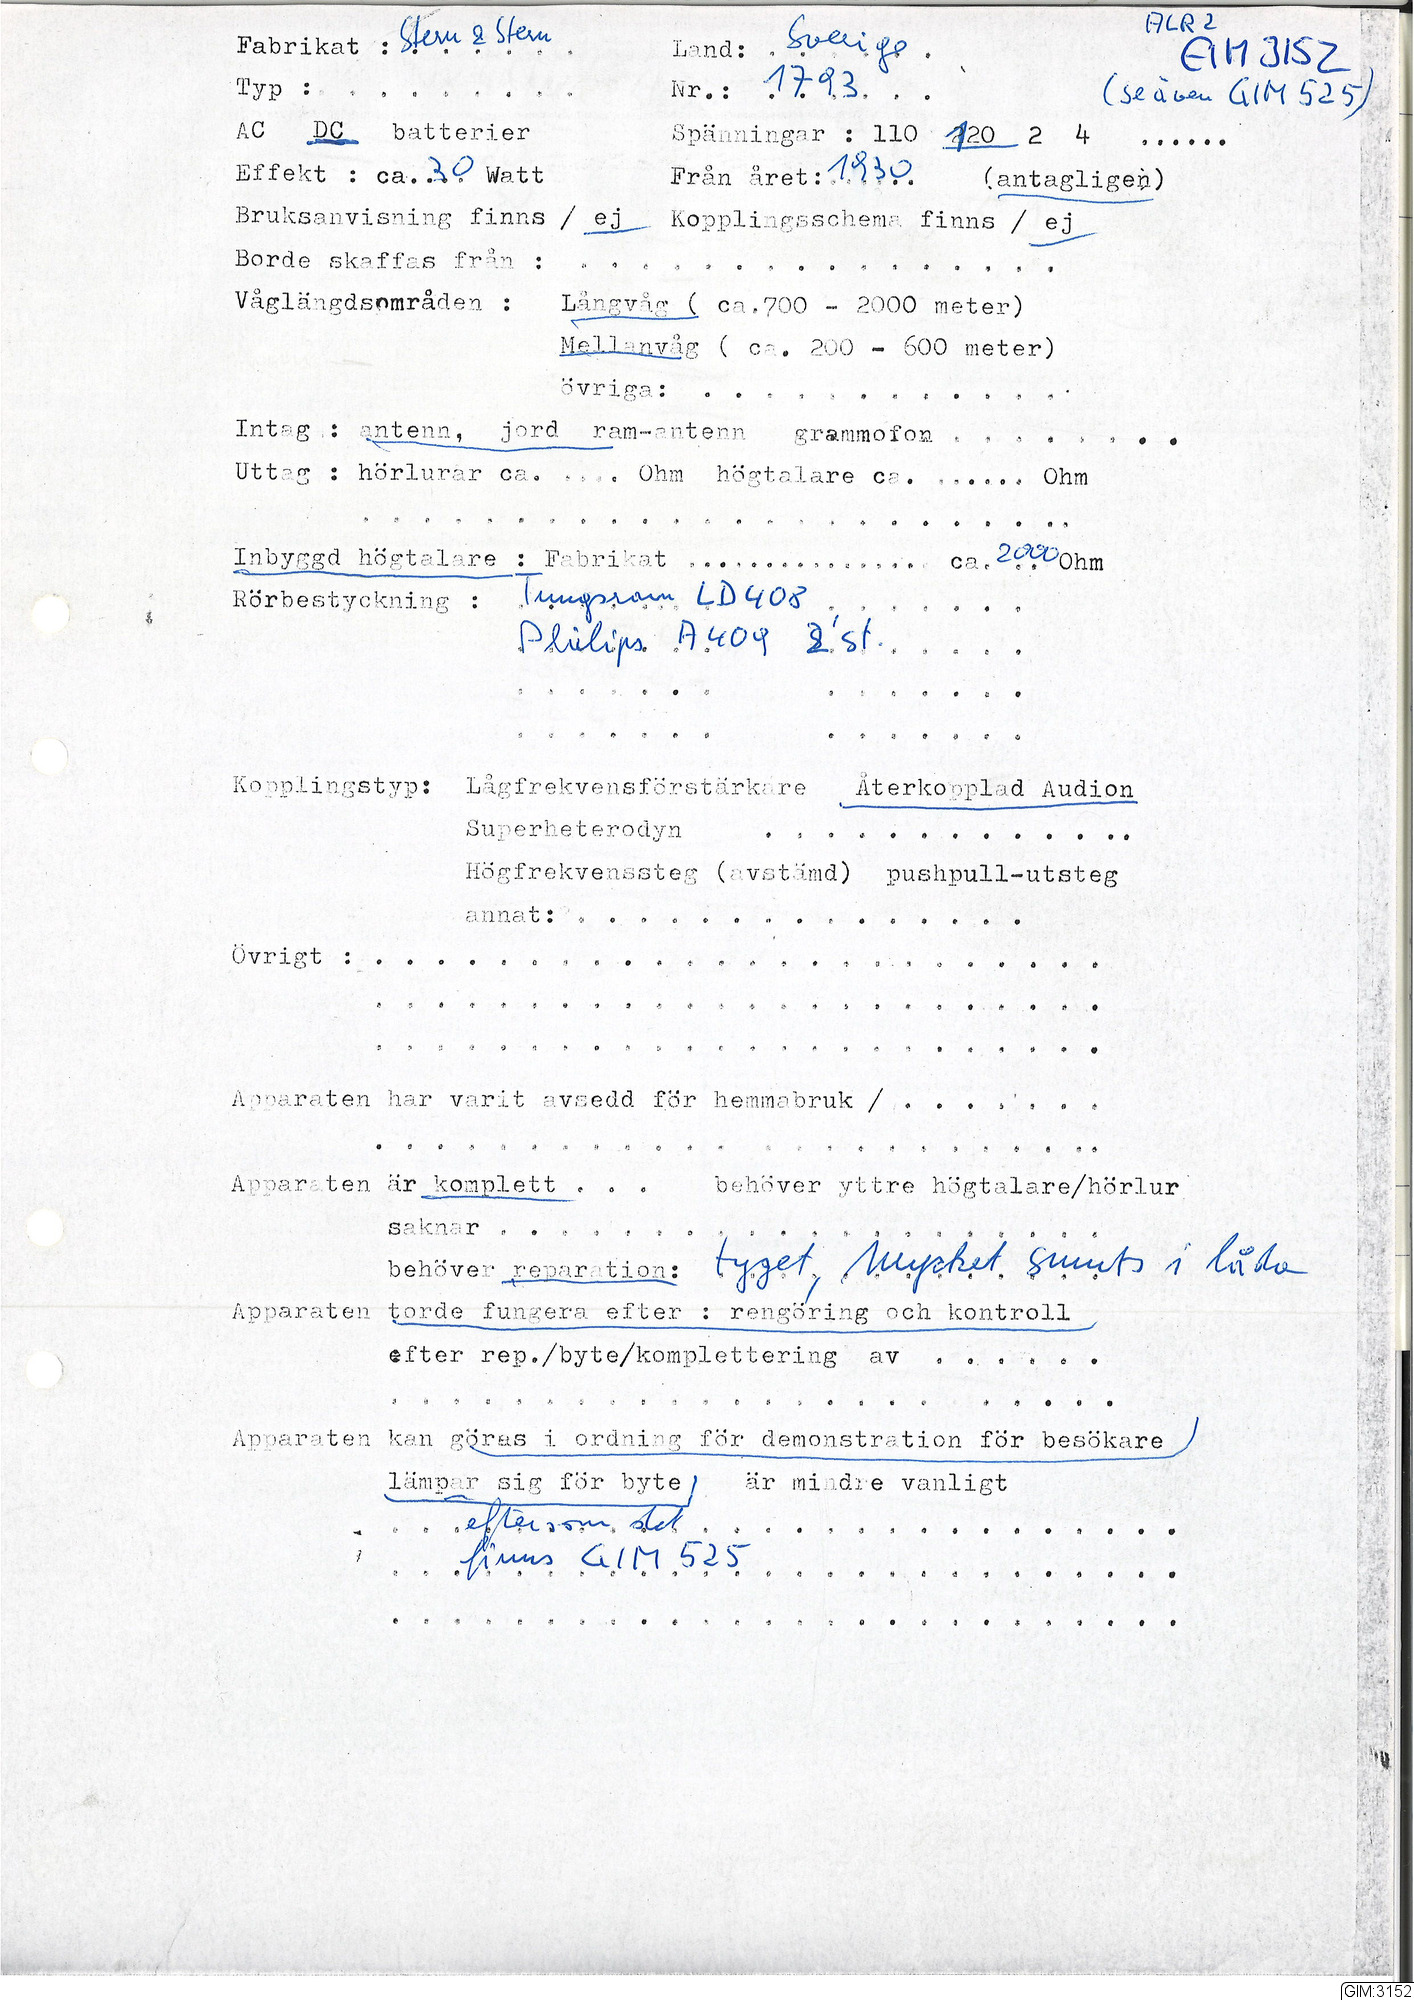 ALR 2
Fabrikat : Stern & Stern Land: Sverige GIM 3152
Typ : . . . . . . . . . Nr.: 1793 . . . (se även GIM 525)
AC DC batterier Spänningar : 110 120 2 4 ......
Effekt : ca. 30 Watt Från året: 1930 (antagligen)
Bruksanvisning finns / ej Kopplingsschema finns / ej
Borde skaffas från : . . . . . . . . . . . . . . . .
Våglängdsområden : Långvåg ( ca.700 - 2000 meter)
Mellanvåg ( ca. 200 - 600 meter)
övriga: . . . . . . . . . . . .
Intag : antenn, jord ram-antenn grammofon . . . . . . . .
Uttag : hörlurar ca. .... Ohm högtalare ca. ...... Ohm
. . . . . . . . . . . . . . . . . . . . . . . .
Inbyggd högtalare : Fabrikat ................ ca. 2000 Ohm
Rörbestyckning : Tungsram LD 408 . . . . . . .
Philips A 409 2 st. . . . . .
. . . . . . . . . . . . . .
. . . . . . . . . . . . . .
Kopplingstyp: Lågfrekvensförstärkare Återkopplad Audion
Superheterodyn . . . . . . . . . . . . .
Högfrekvenssteg (avstämd) pushpull-utsteg
annat: . . . . . . . . . . . . . . .
Övrigt : . . . . . . . . . . . . . . . . . . . . . . . .
. . . . . . . . . . . . . . . . . . . . . . . .
. . . . . . . . . . . . . . . . . . . . . . . .
Apparaten har varit avsedd för hemmabruk / . . . . . . .
. . . . . . . . . . . . . . . . . . . . . . . .
Apparaten är komplett . . . behöver yttre högtalare/hörlur
saknar . . . . . . . . . . . . . . . . . . . .
behöver reparation: tyget, Mycket smuts i låda
Apparaten torde fungera efter : rengöring och kontroll
efter rep./byte/komplettering av . . . . . .
. . . . . . . . . . . . . . . . . . . . . . .
Apparaten kan göras i ordning för demonstration för besökare
lämpar sig för byte, är mindre vanligt
. . . eftersom det . . . . . . . . . . . . . . . .
. . . finns GIM 525 . . . . . . . . . . . . . .
. . . . . . . . . . . . . . . . . . . . . . . . . .
GIM:3152